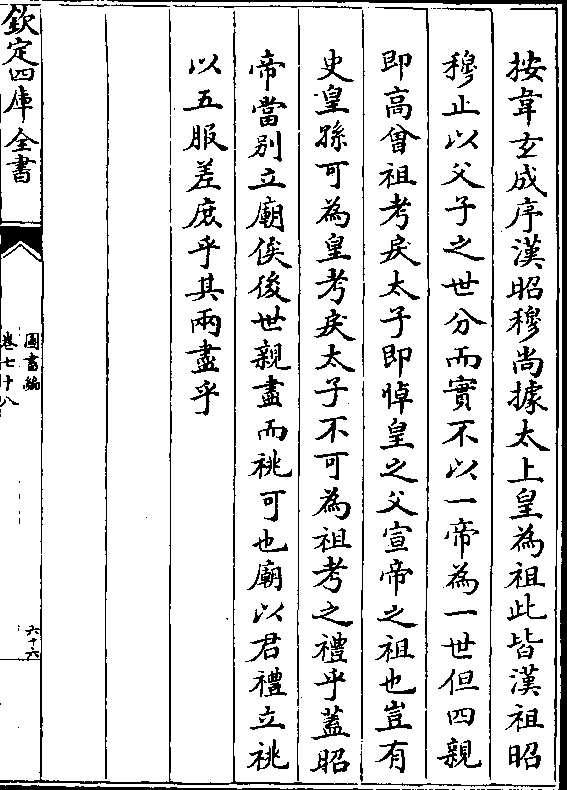 按韋玄成序漢昭穆尚據太上皇為祖此皆漢祖昭
穆止以父子之世分而實不以一帝為一世但四親
即高曾祖考戾太子即悼皇之父宣帝之祖也豈有
史皇孫可為皇考戾太子不可為祖考之禮乎蓋昭
帝當别立廟俟後世親盡而祧可也廟以君禮立祧
以五服差庶乎其兩盡乎
欽定四庫全書
圖書編
卷七十八
六十六